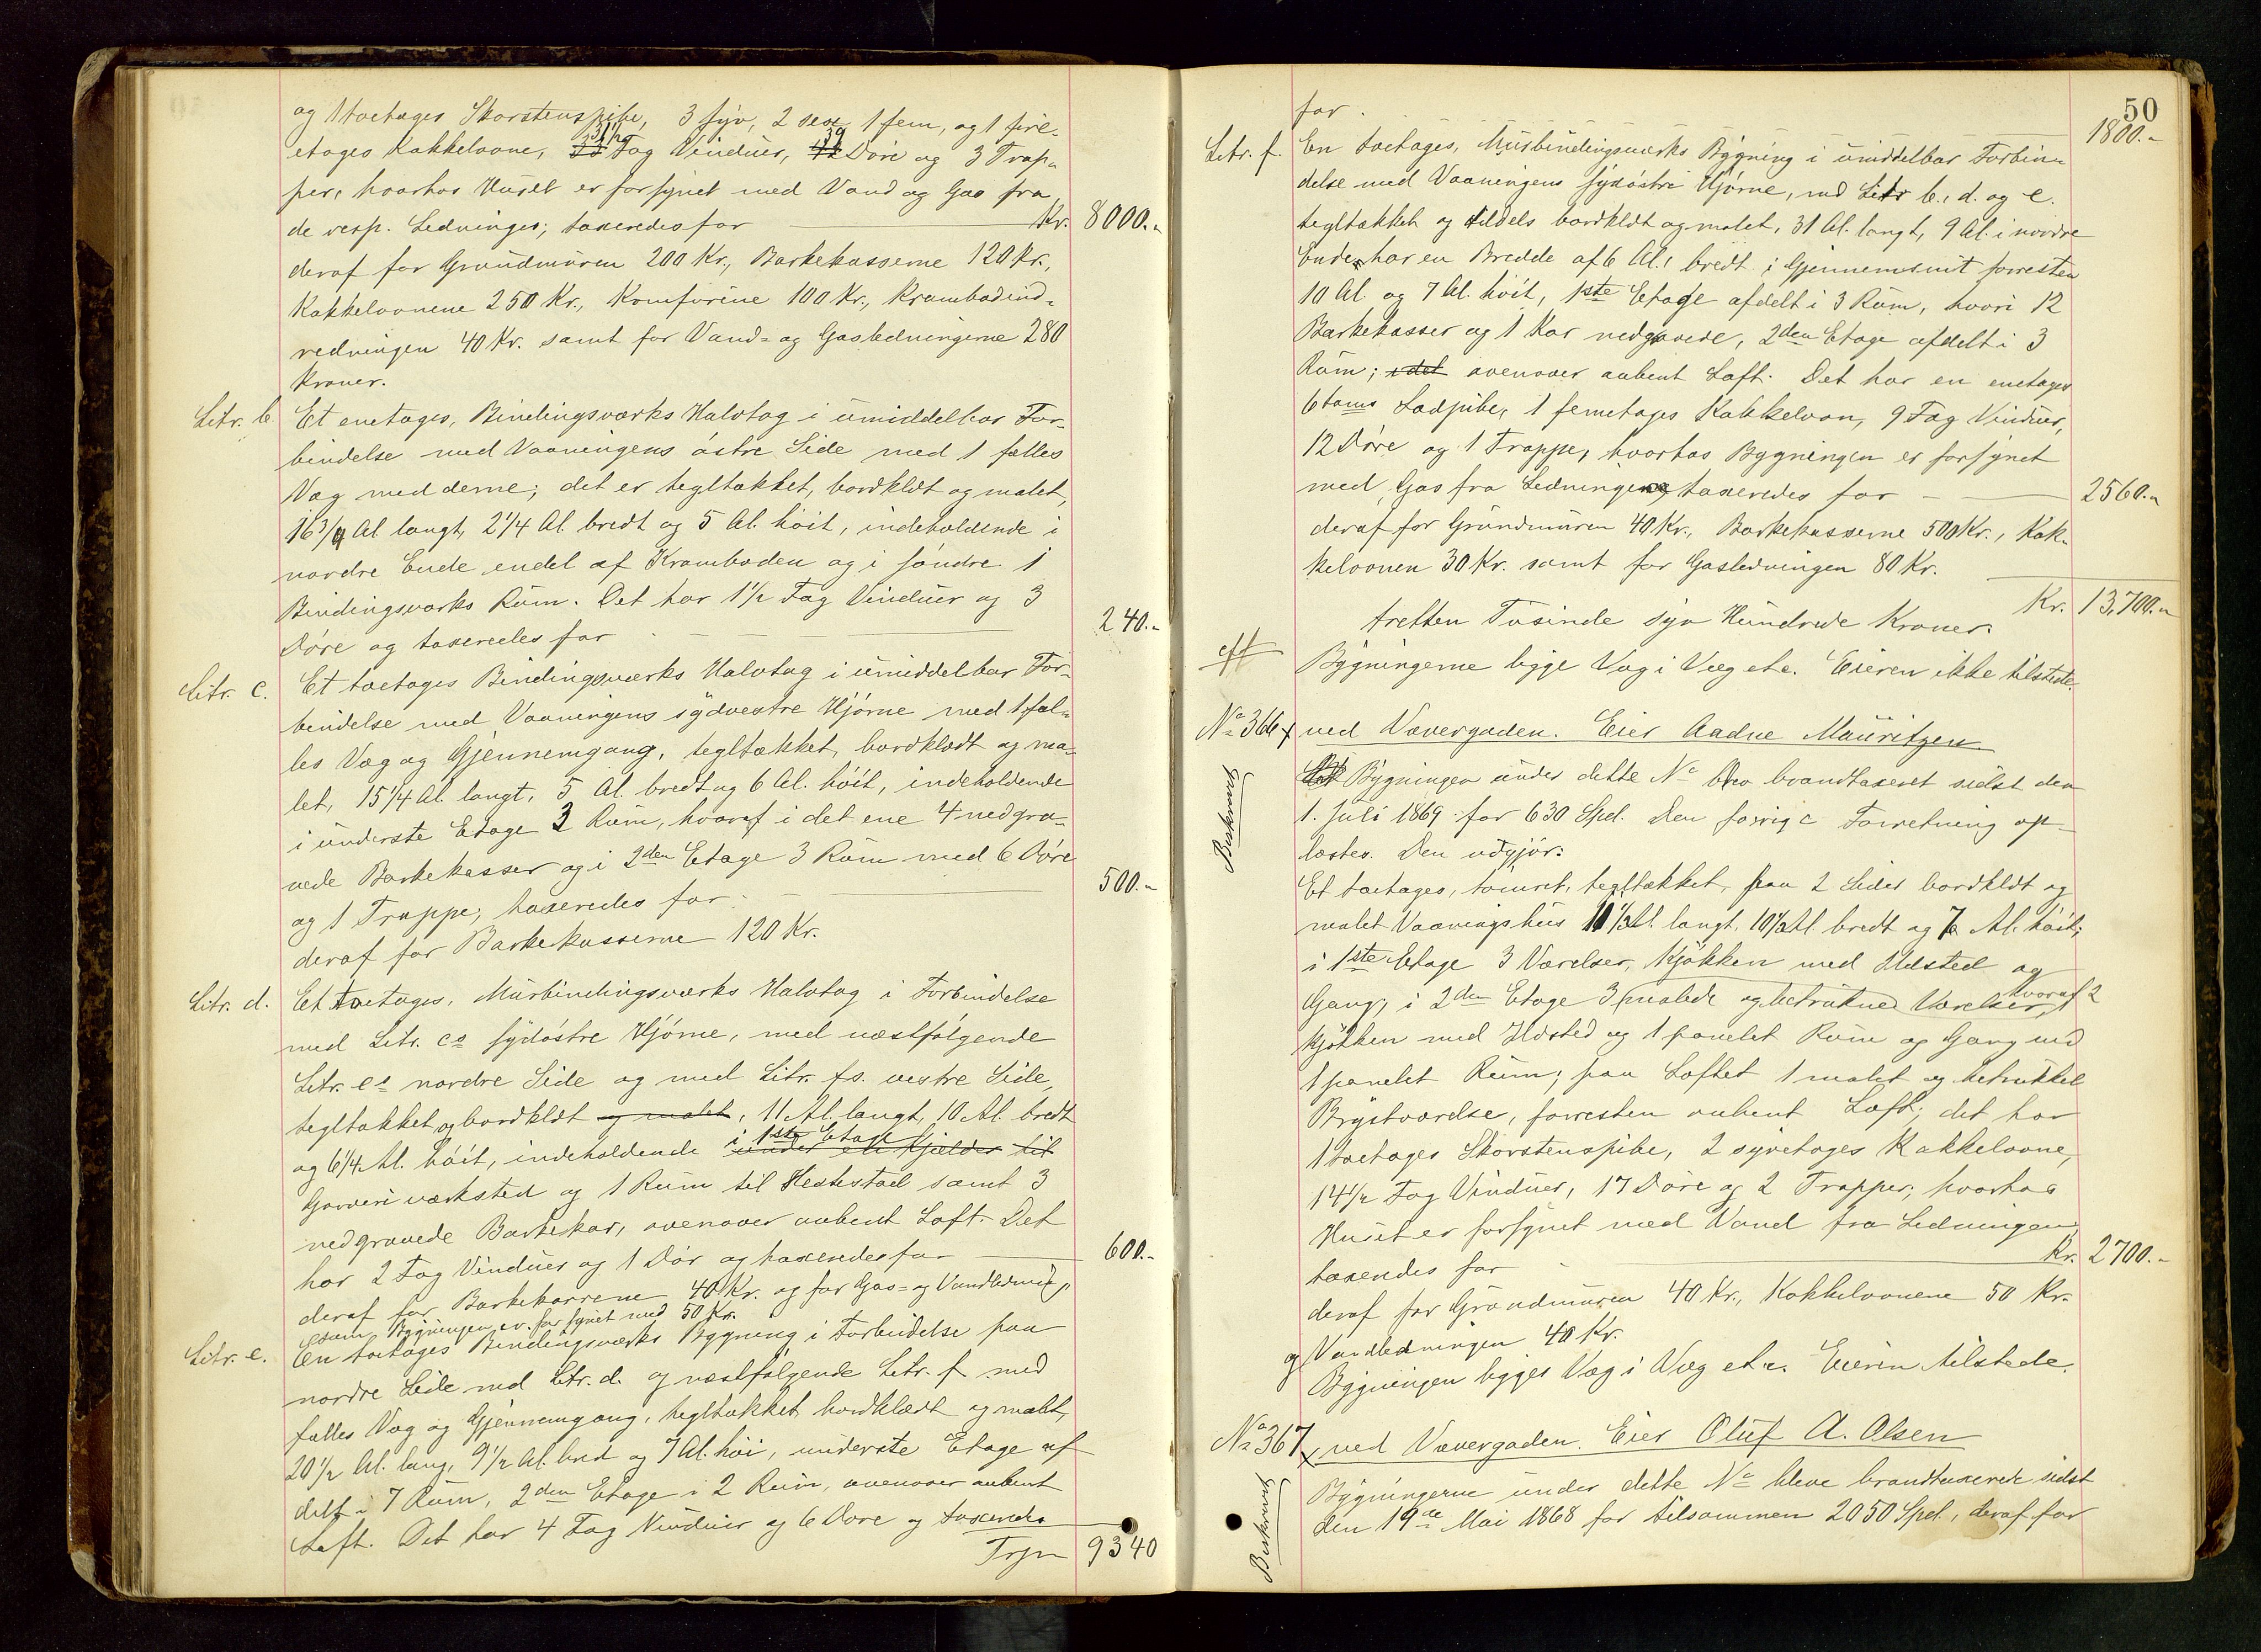 og 1 toetages Skorstenspibe, 3 syv, 2 sex, 1 fem, og 1 fire-
etages Kakkelovne, 33 1/2 Fag Vinduer, 39 Döre og 3 Trap-
per, hvorhos Huset er forsynet med Vand og Gas fra
de resp. Ledninger; taxeredes for Kr. 8000.-
deraf for Grundmuren 200 Kr., Barkekasserne 120 Kr.,
Kakkelovnene 250 Kr., Komfurene 100 Kr., Krambodind-
redningen 40 Kr. samt for Vand- og Gasledningerne 280
Kroner.
Litr. b Et enetages, Bindingsværks Halvtag i umiddelbar For-
bindelse med Vaaningens östre Side med 1 fælles
Væg med denne; det er tegltækket, bordklædt og malet,
16 3/4 Al. langt, 2 1/4 Al. bredt og 5 Al. höit, indeholdende i
nordre Ende endel af Kramboden og i söndre 1
Bindingsværks Rum. Det har 1 1/2 Fag Vinduer og 3
Döre og taxeredes for 240.-
Litr. c. Et toetages Bindingsværks Halvtag i umiddelbar For-
bindelse med Vaaningens sydvestre Hjörne med 1 fæl-
les Væg og Gjennemgang, tegltækket, bordklædt og ma-
let, 15 1/4 Al. langt, 5 Al. bredt og 6 Al. höit, indeholdende
i underste Etage 2 Rum, hvoraf i det ene 4 nedgra-
vede Barkekasser og i 2den Etage 3 Rum med 6 Döre
og 1 Trappe; taxeredes for 500.-
deraf for Barkekasserne 120 Kr.
Litr. d. Et toetages, Murbindingsværks Halvtag i Forbindelse
med Litr. cs sydöstre Hjörne, med næstfölgende
Litr. es nordre Side og med Litr. fs. vestre Side,
tegltækket og bordklædt og malet, 11 Al. langt, 10 Al. bredt
og 6 1/4 Al. höit, indeholdende i 1ste Etage under en Kjælder til
Garveriværksted og 1 Rum til Hestestald samt 3
nedgravede Barkekar, ovenover aabent Loft. Det
har 2 Fag Vinduer og 1 Dör og taxeredes for 600.-
deraf for Barkekarrene 40 Kr. og for Gas- og Vandledning,
som Bygningen er forsynet med 50 Kr.
Litr. e. En toetages Bindingsværks Bygning i Forbindelse paa
nordre Side med Litr. d. og næstfölgende Litr. f med
fælles Væg og Gjennemgang, tegltækket bordklædt og malet,
20 1/2 Al. lang, 9 1/2 Al. bred og 7 Al. höi, underste Etage af
delt i 7 Rum, 2den Etage i 2 Rum, ovenover aabent
Loft. Det har 4 Fag Vinduer og 6 Döre og taxeredes
Trsp. 9340
50
for 1800.-
Litr. f. En toetages, Murbindingsværks Bygning i umiddelbar Forbin-
delse med Vaaningens sydöstre Hjörne, med Litr b., d. og e.
tegltækket og tildels bordklædt og malet, 31 Al. langt, 9 Al. i nordre
Ende, har en Bredde af 6 Al., bredt i Gjennemsnit forresten
10 Al. og 7 Al. höit, 1ste Etage afdelt i 3 Rum, hvori 12
Barkekasser og 1 Kar nedgravede, 2den Etage afdelt i 3
Rum; i det ovenover aabent Loft. Det har en enetages
6toms Ladpibe, 1 femetages Kakkelovn, 9 Fag Vinduer,
12 Döre og 1 Trappe, hvorhos Bygningen er forsynet
med Gas fra Ledningen; taxeredes for 2560.-
deraf for Grundmuren 40 Kr., Barkekasserne 500 Kr., Kak-
kelovnen 30 Kr. samt for Gasledningen 80 Kr.
Kr. 13,700.-
tretten Tusinde syv Hundrede Kroner.
Bygningerne ligge Væg i Væg etc. Eieren ikke tilstede.
No 366 x ved Vævergaden. Eier Aadne Mauritzen
Beskrevet
Bygningen under dette No blev brandtaxeret sidst den
1. Juli 1869 for 630 Spd. Den forrige Forretning op-
læstes. Den udgjör:
Et toetages, tömret, tegltækket, paa 2 Sider bordklædt og
malet Vaaningshus 11 1/2 Al. langt, 10 1/2 Al. bredt og 7 Al. höit;
i 1ste Etage 3 Værelser, Kjökken med Ildsted og
Gang; i 2den Etage 3 (malede og betrukne) Værelser, hvoraf 2
Kjökken med Ildsted og 1 panelet Rum og Gang med
1 panelet Rum; paa Loftet 1 malet og betrukket
Brystværelse, forresten aabent Loft; det har
1 toetages Skorstenspibe, 2 syvetages Kakkelovne,
14 1/2 Fag Vinduer, 17 Döre og 2 Trapper; hvorhos
Huset er forsynet med Vand fra Ledningen,
taxeredes for Kr. 2700.-
deraf for Grundmuren 40 Kr., Kakkelovnene 50 Kr.
og Vandledningen 40 Kr.
Bygningen ligger Væg i Væg etc. Eieren tilstede.
No 367 x ved Vævergaden. Eier Oluf A. Olsen
Beskrevet
Bygningerne under dette No bleve brandtaxerede sidst
den 19de Mai 1868 for tilsammen 2050 Spd., deraf for